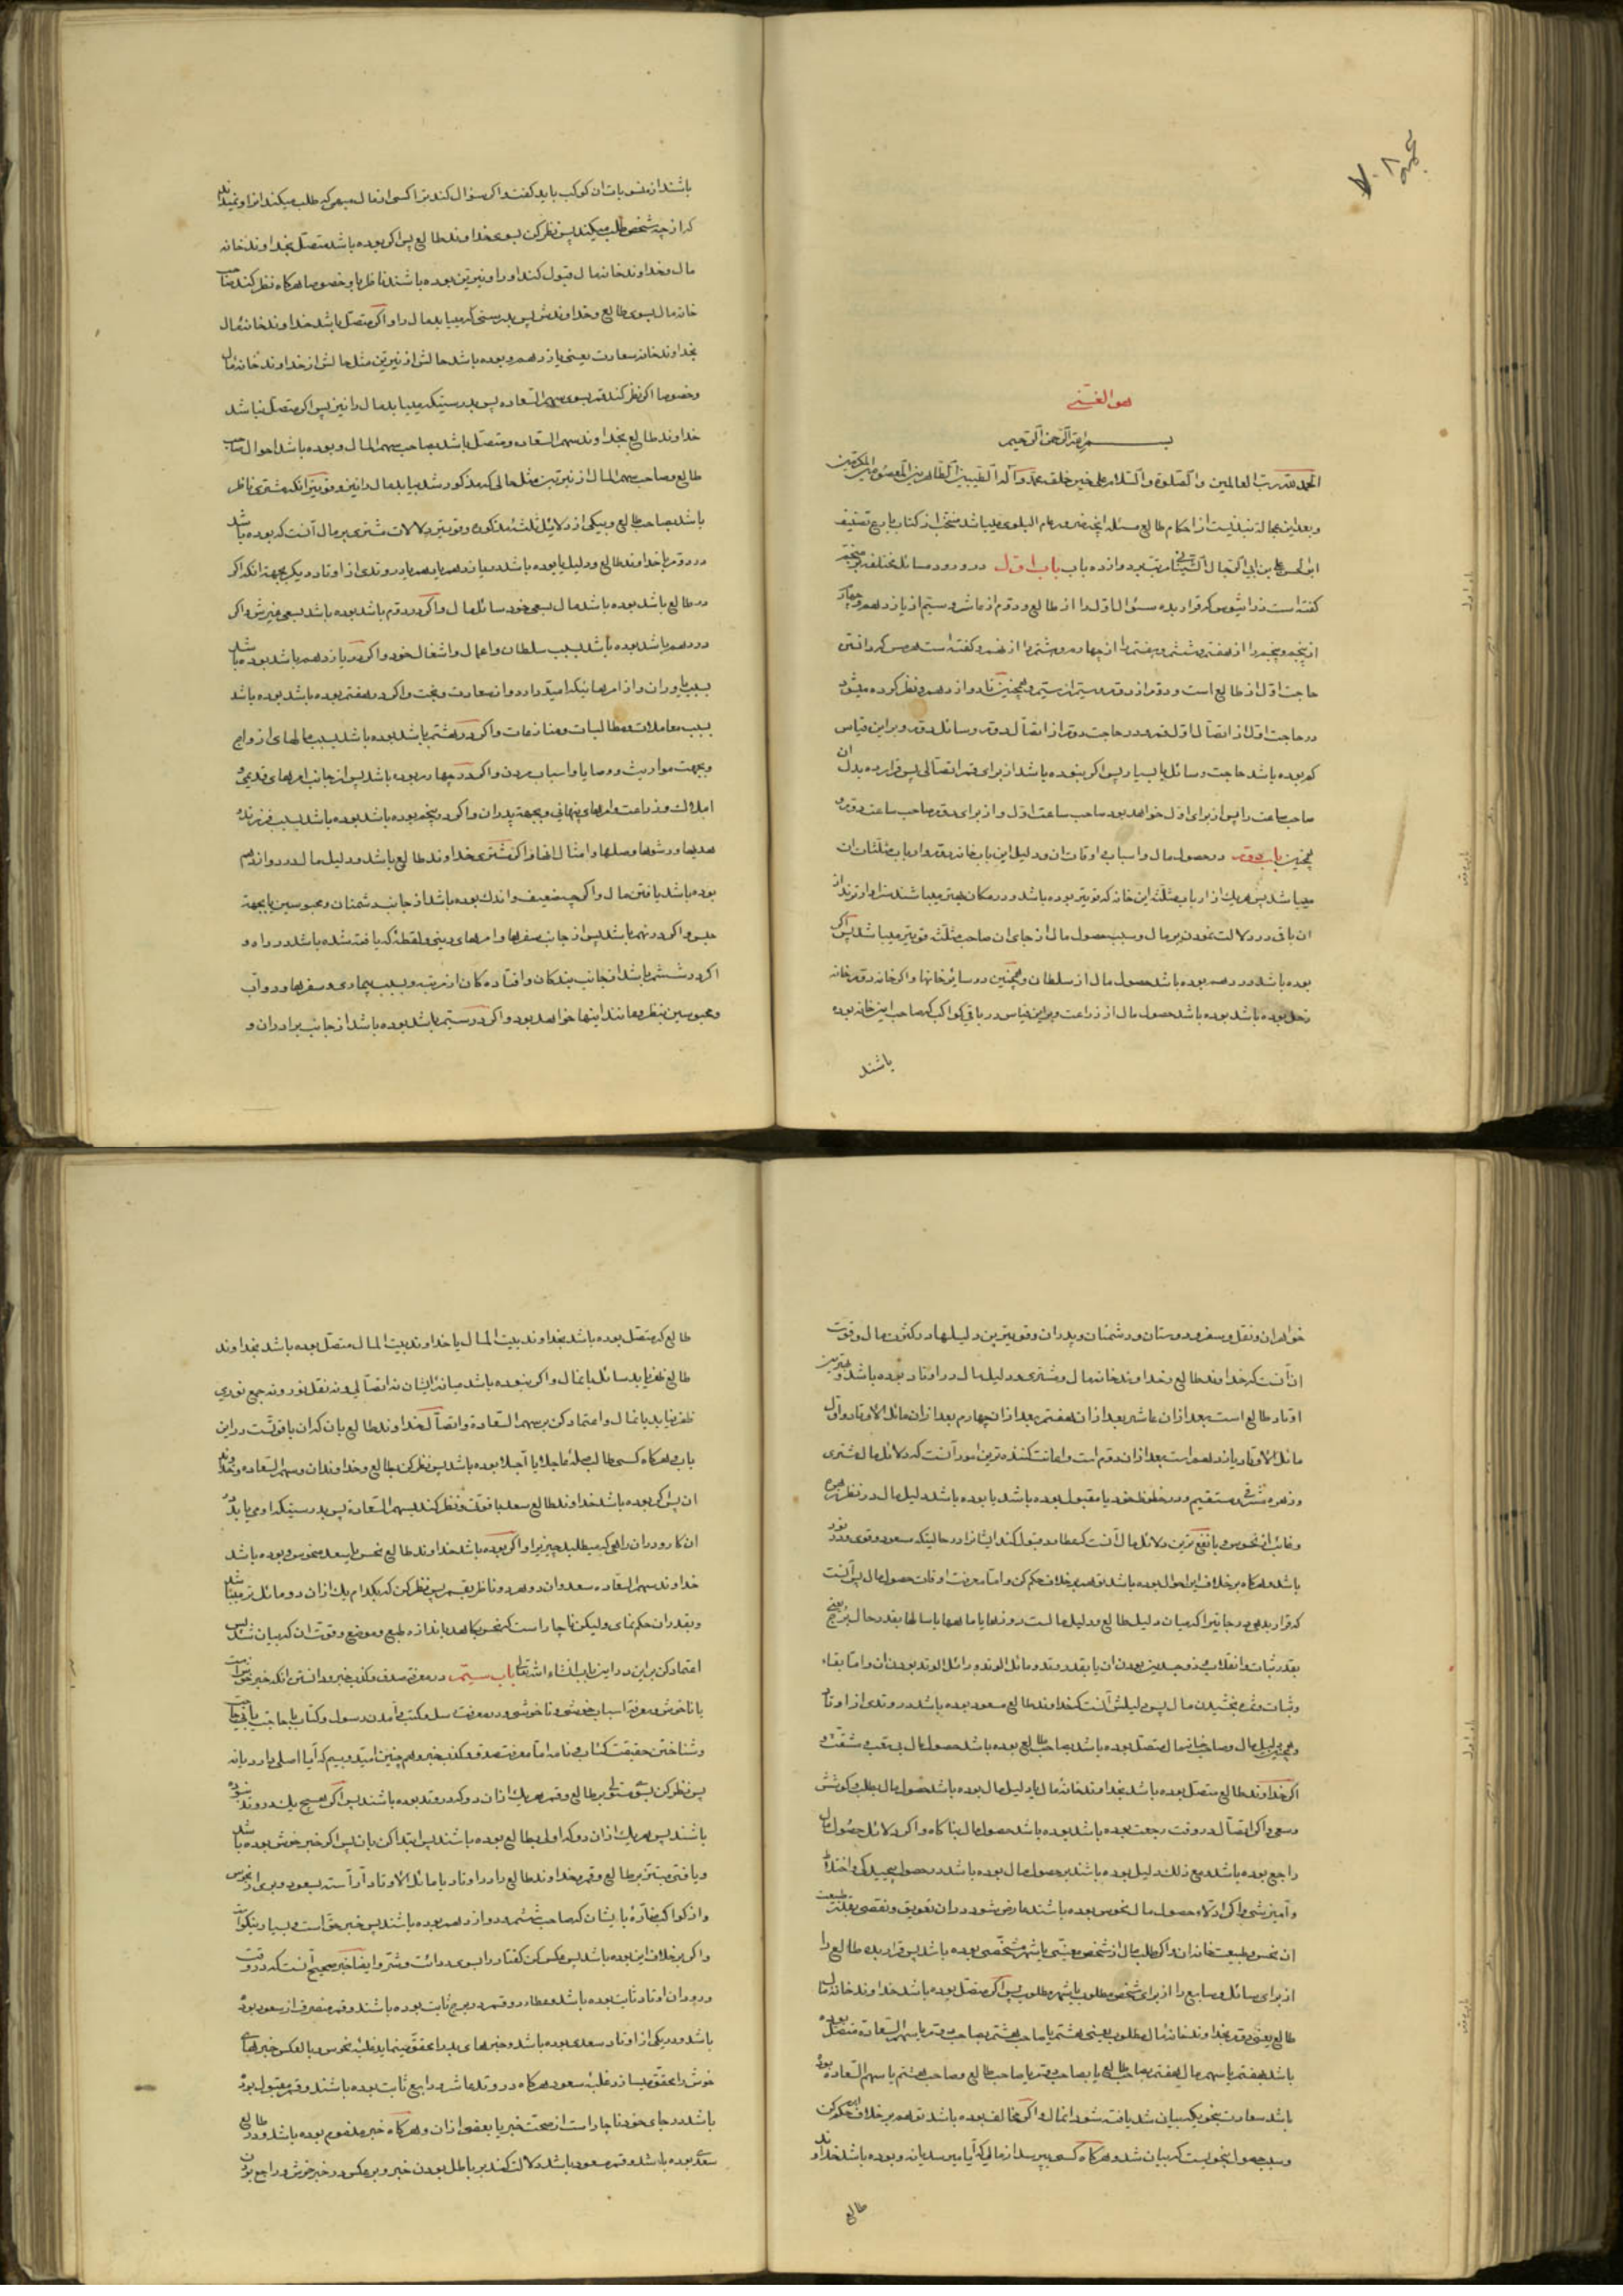 هو الغنی
بسم الله الرحمن الرحیم
الحمد لله رب العالمین والصلوة والسلام علی خیر خلقه محمد وآله الطیبین الطاهرین المعصومین المکرمین
وبعد این عجاله نبذیست از احکام طالع مسئله آنچه ضرور عام البلوی میباشد منتخب از کتاب بارع تصنیف
ابی الحسن علی بن ابی الرجال الشیبانی مرتب بر دوازده باب باب اول در ورود مسائل مختلفه بر منجم
گفته است ذرانیوس که قرار بده سئوال اول را از طالع ودوم از عاشر وسیم از یازدهم وچهارم
از پنجم وپنجم را از هفتم وششم وهفتم را از چهارم وهشتم را از نهم وگفته است هرمس که دانستن
حاجت اول از طالع است ودوم از دوم وسیم از سیم وهمچنین تا دوازدهم ونظر کرده میشود
در حاجت اول از اتصال اول قمر ودر حاجت دوم از اتصال دوم وسائل دوم وبر این قیاس
که بوده باشد حاجت وسائل یا بسیار پس اگر بنوده باشد از برای قمر اتصالی پس قرار بده بدل ان
صاحب ساعت را پس از برای اول خواهد بود صاحب ساعت اول واز برای دوم صاحب ساعت دوم و
همچنین باب دوم در حصول مال واسباب واوقات ان ودلیل این باب خانه دوم وارباب مثلثات ان
میباشد پس هریک از ارباب مثلثه این خانه که قویتر بوده باشد ودر مکان بهتر میباشند سزاوارترند از
ان باقی در دلالت نمودن بر مال وسبب حصول مال از جای ان صاحب مثلثه قویتر میباشد پس اگر
بوده باشد در دهم بوده باشد حصول مال از سلطان وهمچنین در سائر خانها واگر خانه دوم خانه
زحل بوده باشد بوده باشد حصول مال از زراعت وبر این قیاس در باقی کواکب که صاحب این خانه بوده
باشند
باشند از منسوبات ان کوکب باید گفت واگر سؤال کند ترا کسی از مال مبهمی که طلب میکند انرا ونمیداند
که از چه شخص طلب میکند پس نظر کن بسوی خداوند طالع پس اگر بوده باشد متصل بخداوند خانه
مال وخداوند خانه مال قبول کند او را ونیرین بوده باشند ناظر باو خصوصا هرگاه نظر کند صاحب
خانه مال بسوی طالع وخداوندش پس بدرستی که میابد مال را واگر متصل باشد خداوند خانه مال
بخداوند خانه سعادت یعنی یازدهم وبوده باشد حالش از نیرین مثل حالش از خداوند خانه مال
وخصوصا اگر نظر کند قمر بسوی سهم السعاده پس بدرستیکه میابد مال را نیز پس اگر متصل نباشد
خداوند طالع بخداوند سهم السعاده ومتصل باشد بصاحب سهم المال وبوده باشد احوال صاحب
طالع وصاحب سهم المال از نیرین مثل حالی که مذکور شد میابد مال را نیز وقویتر انکه مشتری ناظر
باشد بصاحب طالع وبیکی از دلائل ثلثه مذکوره وقویترین دلالات مشتری بر مال آنست که بوده باشد
در دوم یا خداوند طالع ودلیل یا بوده باشد در یازدهم یا دهم یا در وتدی از اوتاد دیگر بجهة انکه اگر
در طالع باشد بوده باشد مال بسعی خود سائل مال واگر در دوم باشد بوده باشد بسعی غیرش واگر
در دهم باشد بوده باشد بسبب سلطان واعمال واشغال خود واگر در یازدهم باشد بوده باشد
بسبب یاوران واز امرهائیکه امید دارد وان سعادت وبخت واگر در هفتم بوده باشد بوده باشد
بسبب معاملات ومطالبات ومنازعات واگر در هشتم باشد بوده باشد بسبب مالهای ازواج
وبجهت مواریث ووصایا واسباب مردن واگر در چهارم بوده باشد پس از جانب امرهای قدیمی و
املاک وزراعت وامرهای پنهانی وبجهة پدران واگر در پنجم بوده باشد بوده باشد بسبب فرزند و
هدیها ورشوها وصلها وامثال انها واگر مشتری خداوند طالع باشد ودلیل مال در دوازدهم
بوده باشد یافتن مال واگرچه ضعیف واندک بوده باشد از جانب دشمنان ومحبوسین یا بجهة
حبس واگر در نهم باشد پس از جانب سفرها وامرهای دینی ولقطه که یافته شده باشد در راه و
اگر در ششم باشد از جانب بندگان وافتاده گان از مرتبه وبسبب بیماری وسفرها ودواب
ومحبوسین بنظر ومانند اینها خواهد بود واگر در سیم باشد بوده باشد از جانب برادران و
خواهران ونقل وسفر ودوستان ودشمنان وپدران وقویترین دلیلها در کثرت مال وقوت
ان آنست که خداوند طالع وخداوند خانه مال ومشتری ودلیل مال در اوتاد بوده باشند وبهترین
اوتاد طالع است بعد از ان عاشر بعد از ان هفتم بعد از ان چهارم بعد از ان مائل الاوتاد واول
مائل الاوتاد یازدهم است بعد از ان دوم است واعانت کننده ترین امور آنست که دلائل مال مشتری
وزهره مشرق ومستقیم ودر حظوظ خود یا مقبول بوده باشد یا بوده باشد دلیل مال در نظر
وغائب از نحوس وبا نفع ترین دلائل مال آنست که عطارد قبول کند ایشانرا در حالیتکه مسعود وقوی بوده
باشد وهرگاه بر خلاف این احوال بوده باشد توهم بر خلاف حکم کن واما معرفت اوقات حصول مال پس آنست
که قرار بدهی درجاتیرا که میان دلیل طالع ودلیل مالست روزها یا ماهها یا سالها بقدر حال برج یعنی
بقدر ثبات وانقلاب وذو جسدین بودن ان یا بقدر وتد ومائل الوتد وزائل الوتد بودن ان واما بقاء
وثبات ونفع بخشیدن مال پس دلیلش آنست که خداوند طالع مسعود بوده باشد در وتدی از اوتاد
وهمچنین دلیل مال وصاحب خانه مال متصل بوده باشد بصاحب طالع بوده باشد حصول مال بی تعب ومشقت و
اگر خداوند طالع متصل بوده باشد بخداوند خانه مال یا دلیل مال بوده باشد حصول مال بطلب وکوشش
وسعی واگر اتصال در وقت رجعت بوده باشد بوده باشد حصول مال بناگاه واگر دلائل حصول مال
راجع بوده باشد ومع ذلک دلیل بوده باشند بر حصول مال بوده باشد در حصول پیچیدگی واختلاط
وآمیزشی واگر ادلاء حصول مال نحوس بوده باشند عارض شود در ان تعویق ونقصی بعلت طبیعت
ان نحس وطبیعت خانه ان واگر طلب مال از شخص معینی یا شهر مشخصی بوده باشد پس قرار بده طالع را
از برای سائل وسابع را از برای شخص مطلوب یا شهر مطلوب پس اگر متصل بوده باشد خداوند خانه مال
طالع یعنی دوم بخداوند خانه مال مطلوب یعنی هشتم یا صاحب هشتم بصاحب دوم یا سهم السعاده متصل بوده
باشد بهفتم یا سهم مال هفتم بصاحب طالع یا بصاحب دوم یا صاحب طالع وصاحب هشتم یا سهم السعاده بوده
باشد سعادت بنحویکه بیان شد یافت شود انمال واگر مخالف بوده باشد توهم بر خلاف ان حکم کن
وسبب حصول بنحویست که بیان شد وهرگاه کسی بپرسد از مالی که آیا میرسد یا نه وبوده باشد خداوند
طالع
طالع که متصل بوده باشد بخداوند بیت المال یا خداوند بیت المال متصل بوده باشد بخداوند
طالع ظفر یابد سائل بانمال واگر بنوده باشد میانه ایشان نه اتصالی ونه نقل نور ونه جمع نوری
ظفر نیابد بانمال واعتماد کن بر سهم السعادة واتصال خداوند طالع بان که ان با قوتست در این
باب وهرگاه کسی طالب صله عاجلا یا آجلا بوده باشد پس نظر کن بطالع وخداوند ان وسهم السعاده وخداوند
ان پس اگر بوده باشد خداوند طالع سعد با قوت ونظر کند بسهم السعادة پس بدرستیکه او می یابد
ان کار ودر ان راهی که میطلبد چیزیرا واگر بوده باشد خداوند طالع نحس یا بسعد منحوس وبوده باشد
خداوند سهم السعاده سعد وان دو هر دو ناظر بقمر پس نظر کن که بکدام یک از ان دو مائل تر میباشد
وبقدر ان حکم نمای ولیکن ناچار است که نحس بکاهد باندازه طبع وموضع وقوت ان که بیان شد پس
اعتماد کن بر این در این باب انشاء الله تعالی باب سیم در معرفت صدق وکذب خبر ودانستن انکه خبر خوبست
یا ناخوش ومعرفة اسباب خوشی وناخوشی ودر معرفت رسل وکتب وآمدن رسول وکتاب یا بحاجت یا بی حاجت
وشناختن حقیقت کتاب ونامه اما معرفت صدق وکذب خبر وهم چنین امید وبیم که آیا اصلی دارد یا نه
پس نظر کن بسوی مستولی بر طالع وقمر هریک از ان دو که در وتد بوده باشند پس اگر هیچ یک در وتد بنوده
باشند پس هریک از ان دو که اولی بطالع بوده باشند پس ابتدا کن بان پس اگر خبر خوش بوده باشد
ویافتی مبتز بر طالع وقمر وخداوند طالع را در اوتاد یا مائل الاوتاد آراسته بسعود وبری از نحوس
واز کواکب مضاره بایشان که صاحب ششم ودوازدهم بوده باشند پس خبر حق است وبسیار نیکو است
واگر بر خلاف این بوده باشد پس عکس کن گفتار را بسوی ردائت وشر وایضا خبر صحیح آنست که در وقت
ورود ان اوتاد ثابت بوده باشد وعطارد وقمر در بروج ثابت بوده باشند وقمر منصرف از سعود بوده
باشد ودر یکی از اوتاد سعدی بوده باشد وخبرهای بد را محقق مینماید غلبه نحوس وبالعکس خبرهای
خوش را محقق میسازد غلبه سعود هرگاه در وتد عاشر ورابع ثابت بوده باشند وقمر مقبول بوده
باشد در جای خود ناچار است از صحت خبر یا بعضی از ان وهرگاه خبر مذموم بوده باشد ودر طالع
سعدی بوده باشد وقمر مسعود باشد دلالت کند بر باطل بودن خبر وبر عکس در خبر خوش وراجع بودن